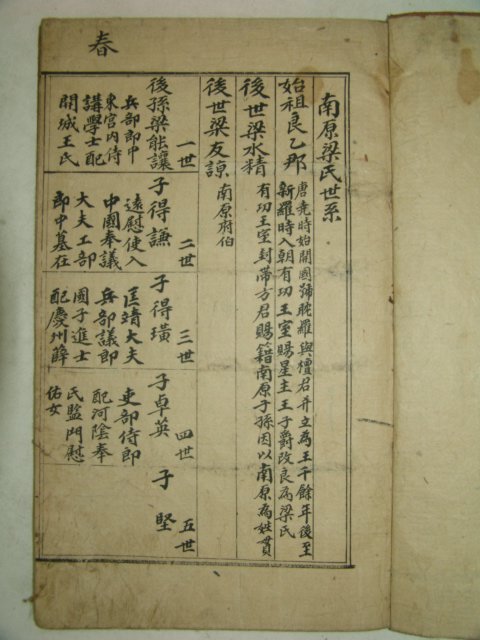 春
南原梁氏世系
始祖良乙那 唐堯時始開國號耽羅與檀君并立為王千餘年後至
新羅時入朝有功王室賜星主王子爵改良為梁氏
後世梁水精 有功王室封帶方君賜籍南原子孫因以南原為姓貫
後世梁友諒 南原府伯
一世
後孫梁能讓
兵部郎中
東宮內侍
講學士配
開城王氏
二世
子得謙
遠慰使入
中國奉議
大夫工部
郎中墓在
三世
子得璜
匡靖大夫
兵部議郎
國子進士
配慶州薛
四世
子卓英
吏部侍郎
配河陰奉
氏監門慰
佑女
五世
子堅